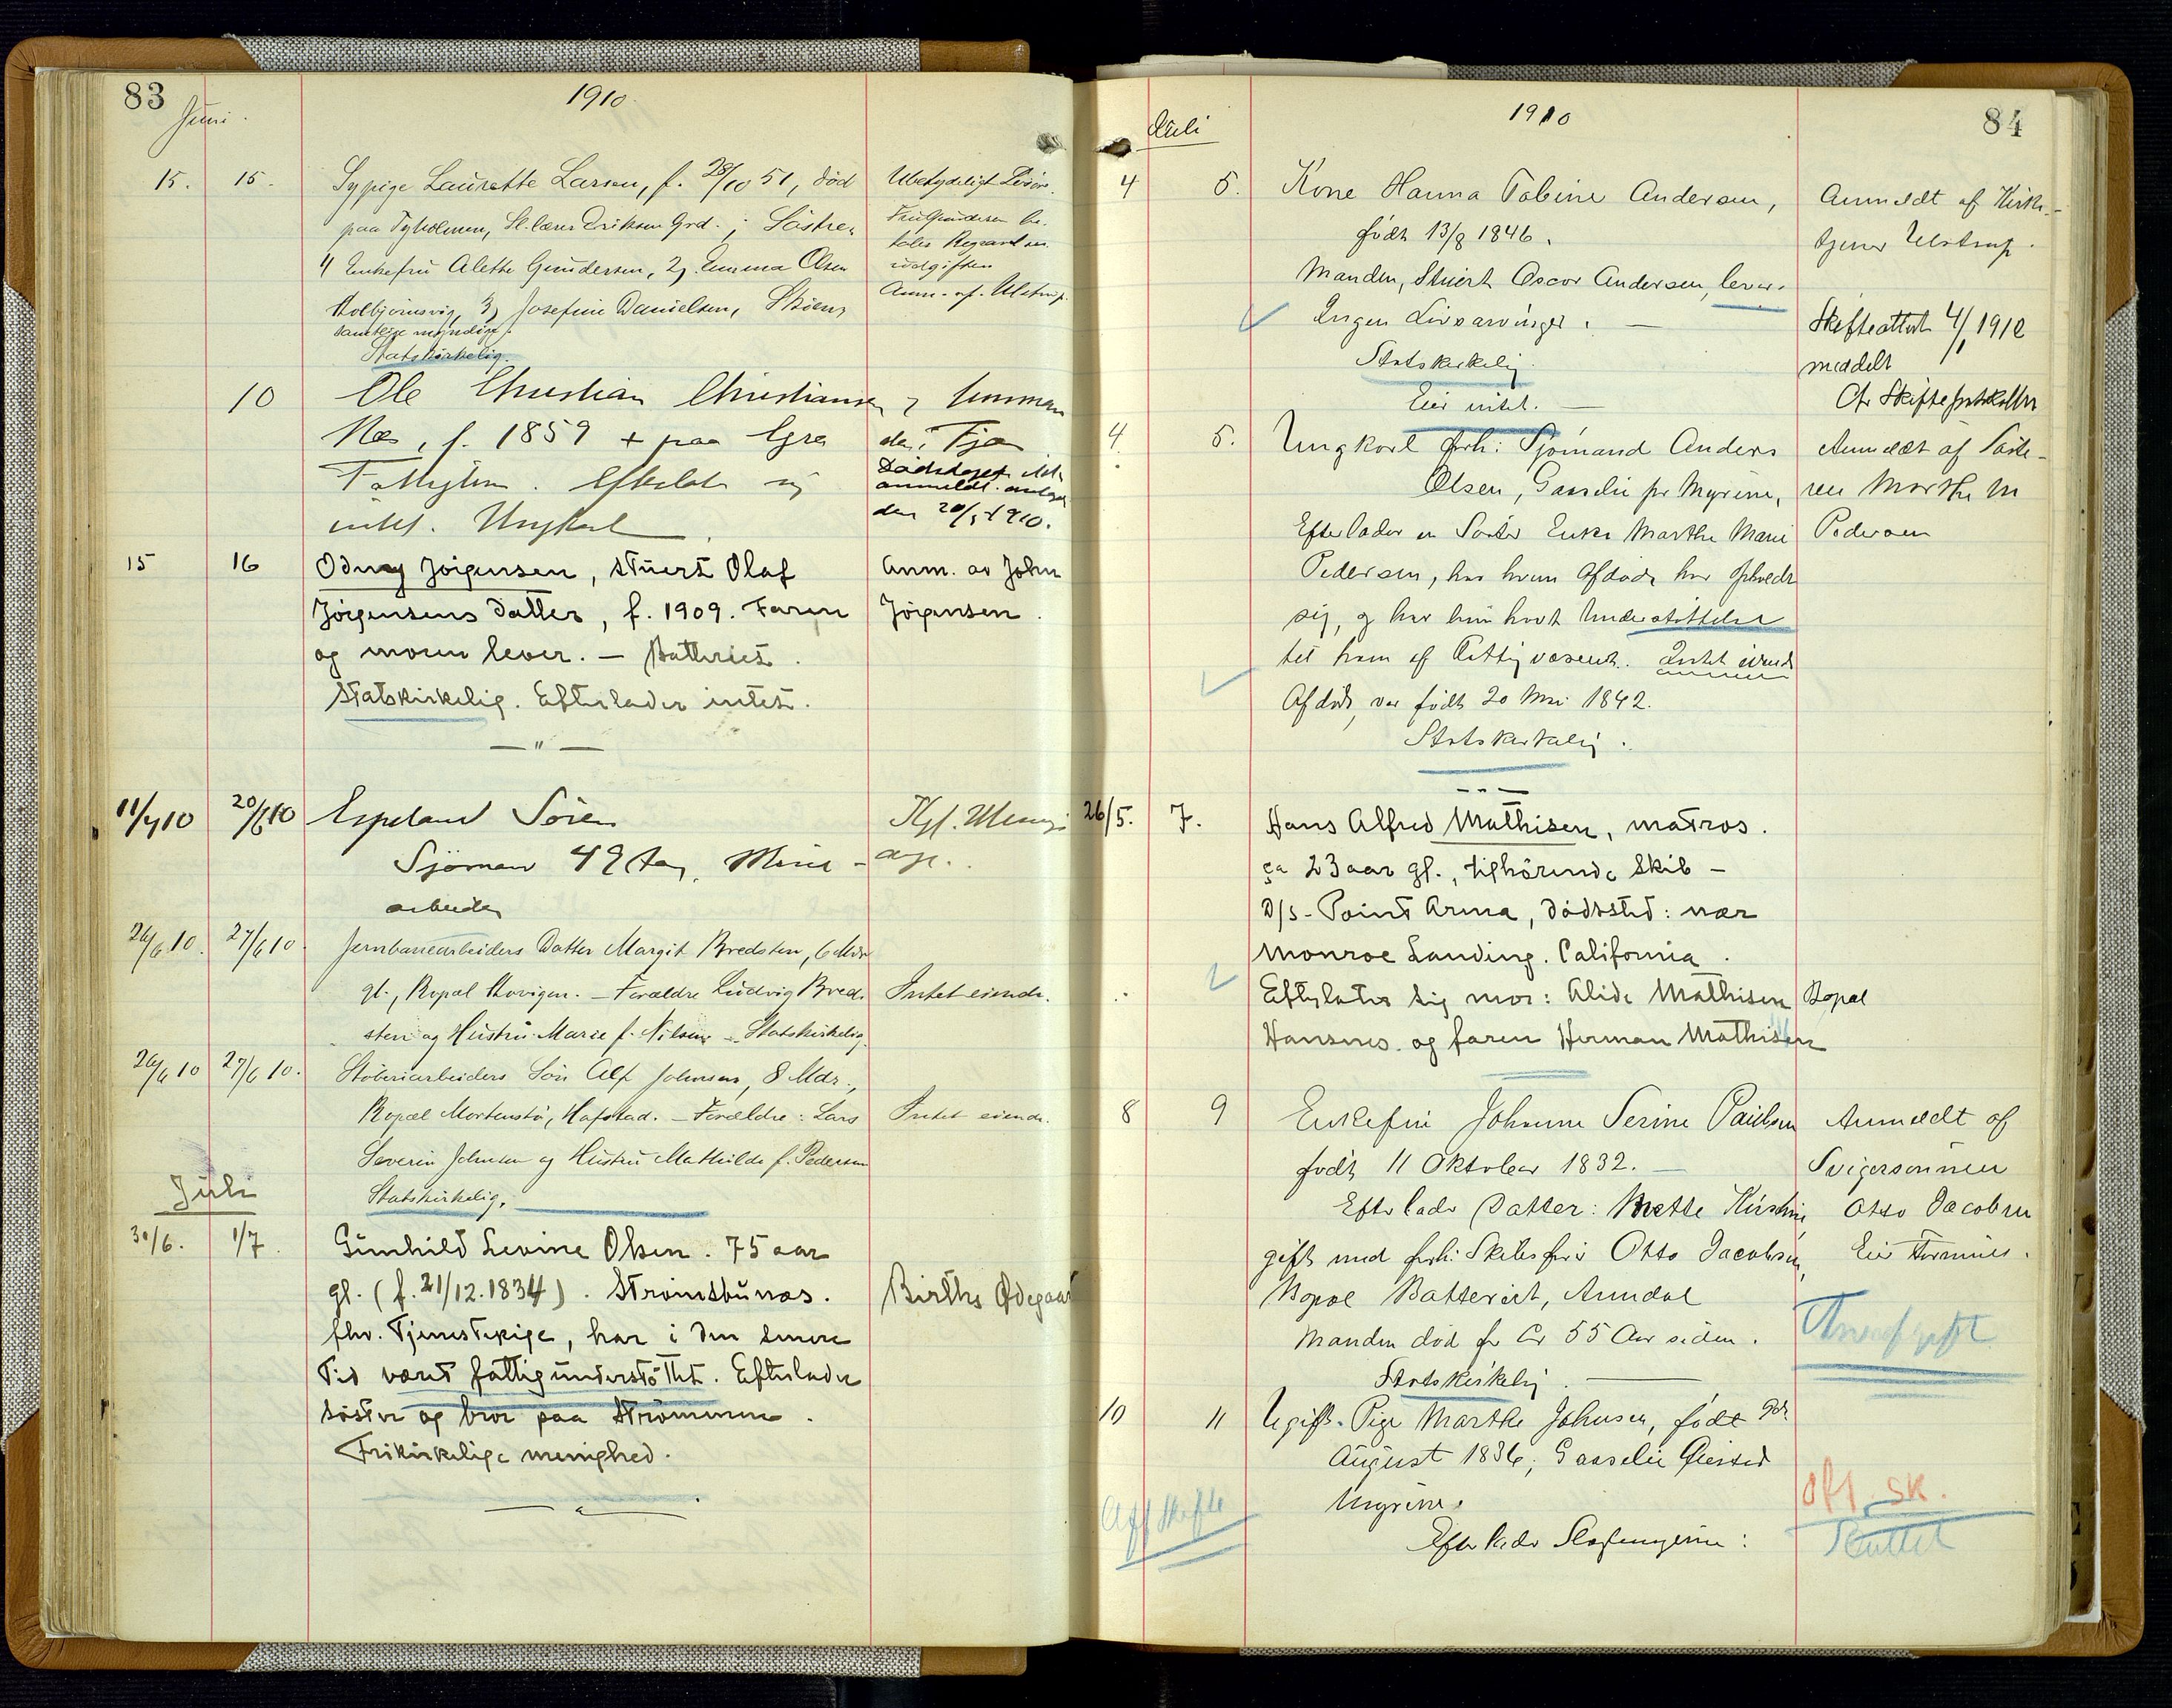 83
Juni.
1910.
15. 15. Sypige Laurette Larsen, f. 28/10 51, død Ubetydeligt Løsøre.
paa Tyholmen, Sl. lærer Eriksen Grd. ; Søstre, Fru Gundersen be-
taler Begravelses
1) Enkefru Alette Gundersen, 2) Emma Olsen udgiften
Kolbjørnsvig, 3) Josefine Danielsen, Skiens Anm. af. Ulstrup.
samtlige myndige.
Statskirkelig.
10 Ole Christian Christiansen,
Næs, f. 1859 + paa
Dødsdaget ikke
Fattiglem. Efterlater sig anmeldt
den 20/5 1910.
intet. Ungkarl
15 16 Odny Jörgensen, stuert Olaf Anm. av John
Jörgensens datter, f. 1909. Faren Jörgensen.
og moren lever. — Batteriet.
Statskirkelig. Efterlader intet.
— " —
11/4 10 20/6 10 Espeland Sören
Sjömann 49 Aar, Mine-
arbeider
26/6 10. 27/6 10. Jernbanearbeiders Datter Margit Bredsten, 6 Mdr
gl., Bopæl Hovigen. — Forældre Ludvig Bred- Intet eiende.
sten og Hustru Marie f. Nilsen — Statskirkelig.
26/6 10 27/6 10. Stöberiarbeiders Sön Alf Johnsen, 8 Mdr.,
Bopæl Mortenstö, Hafstad. — Forældre: Lars Intet eiende.
Severin Johnsen og Hustru Mathilde f. Pedersen
Statskirkelig.
Juli
30/6. 1/7. Gunhild Levine Olsen. 75 aar
gl. (f. 21/12.1834). Strømsbunæs. Birthe Ødegaard
fhv. Tjenestepige, har i den senere
Tid været fattigunderstöttet. Efterlader
söster og bror paa Strömmen.
Frikirkelige menighed.
84
Juli
1910
4 5. Kone Hanna Tobine Andersen, Anmeldt af Kirke-
født 13/8 1846. tjener Ulstrup.
Manden, Stuert Oscar Andersen, lever.
Ingen Livsarvinger. — Skifteattest 4/1 1912
Statskirkelig. meddelt
Eier intet. — Cfr Skifteprotokollen
4 5. Ungkarl forh: Sjømand Anders Anmeldt af Søste-
Olsen, Gaaselie pr Myrene, ren Marthe M
Efterlader en Søster Enke Marthe Marie Pedersen
Pedersen, hos hvem Afdøde har opholdt
sig, og har hun havt Understøttelse
til ham af Fattigvæsenet. Intet eiende
Afdøde var født 20 Mai 1842.
Statskirkelig.
26/5. 7. Hans Alfred Mathisen, matros.
ca 23 aar gl., tilhörende Skib —
D/s - Point Arena, dödssted: nær
Monroe Landing. California.
Efterlater sig mor: Alide Mathisen Bopæl
Hansnes. og faren Herman Mathisen
8 9 Enkefru Johanne Serine Paulsen Anmeldt af
født 11 Oktober 1832. — Svigersønnen
Efterlader Datter: Mette Kirstine, Otto Jacobsen
gift med forh: Skibsfører Otto Jacobsen, Eier Formue.
Bopæl Batteriet, Arendal
Manden død for Ca 55 Aar siden. Arveafgift
Statskirkelig. —
10 11 Ugift. Pige Marthe Johnsen, født 9de
August 1836, Gaaselie Øiestad
Myrene. off. sk.
Off Skifte Sluttet
Efterlader Slægtningerne: